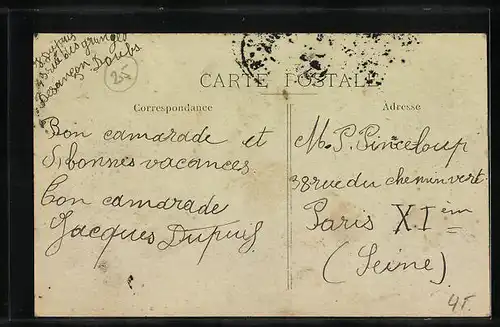 J Dupuis
rue des granges
Besançon
Doubs
25
CARTE POSTALE
Correspondance
Adresse
Bon camarade et
bonnes vacances
Bon camarade
Jacques Dupuis
M. P. Pinceloup
38 rue du chemin vert
Paris XI ème
(Seine)
4F.